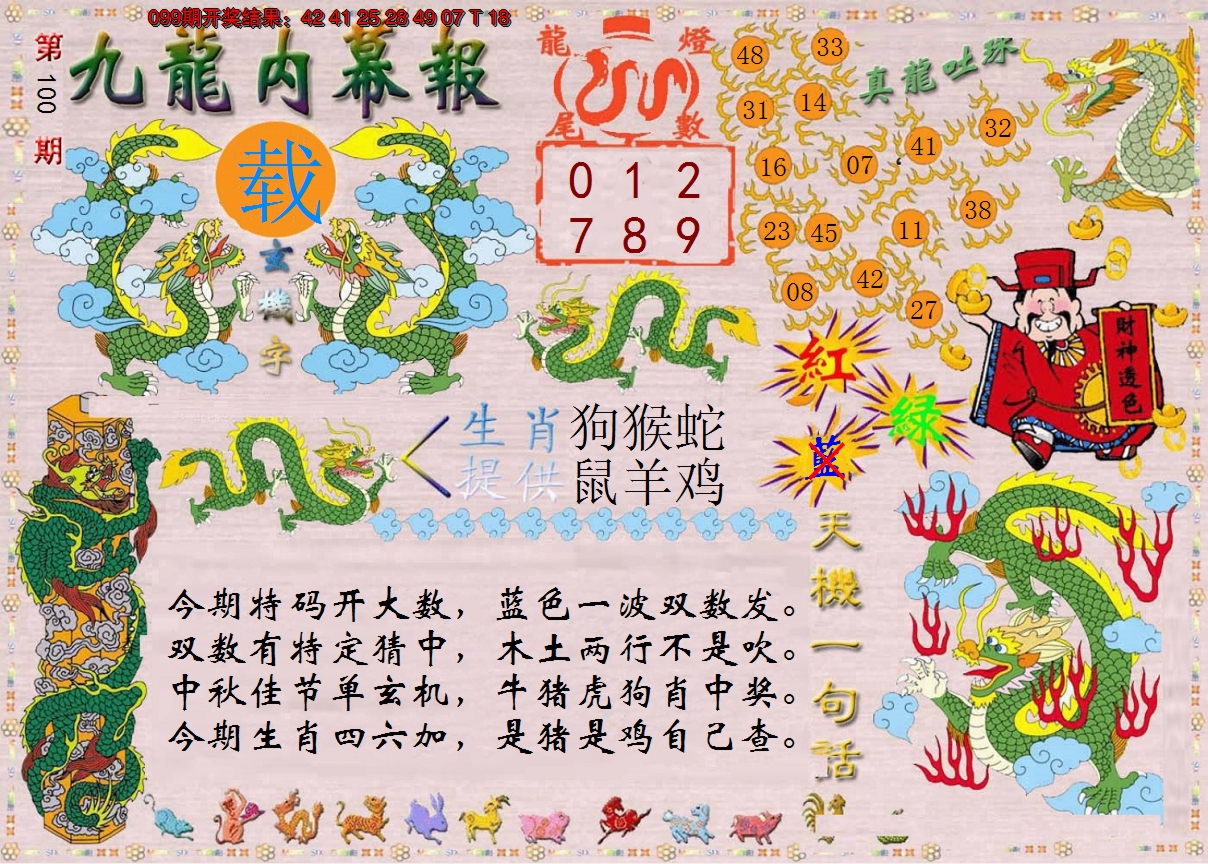 099期开奖结果：42 41 25 28 49 07 T 18
第100期
九龍内幕報
载
玄機字
龍燈
尾數
0 1 2
7 8 9
真龍吐珠
48
33
31
14
41
32
16
07
38
23
45
11
42
08
27
財神透色
紅
綠
藍
生肖 狗猴蛇
提供 鼠羊鸡
天機一句話
今期特码开大数，蓝色一波双数发。
双数有特定猜中，木土两行不是吹。
中秋佳节单玄机，牛猪虎狗肖中奖。
今期生肖四六加，是猪是鸡自己查。